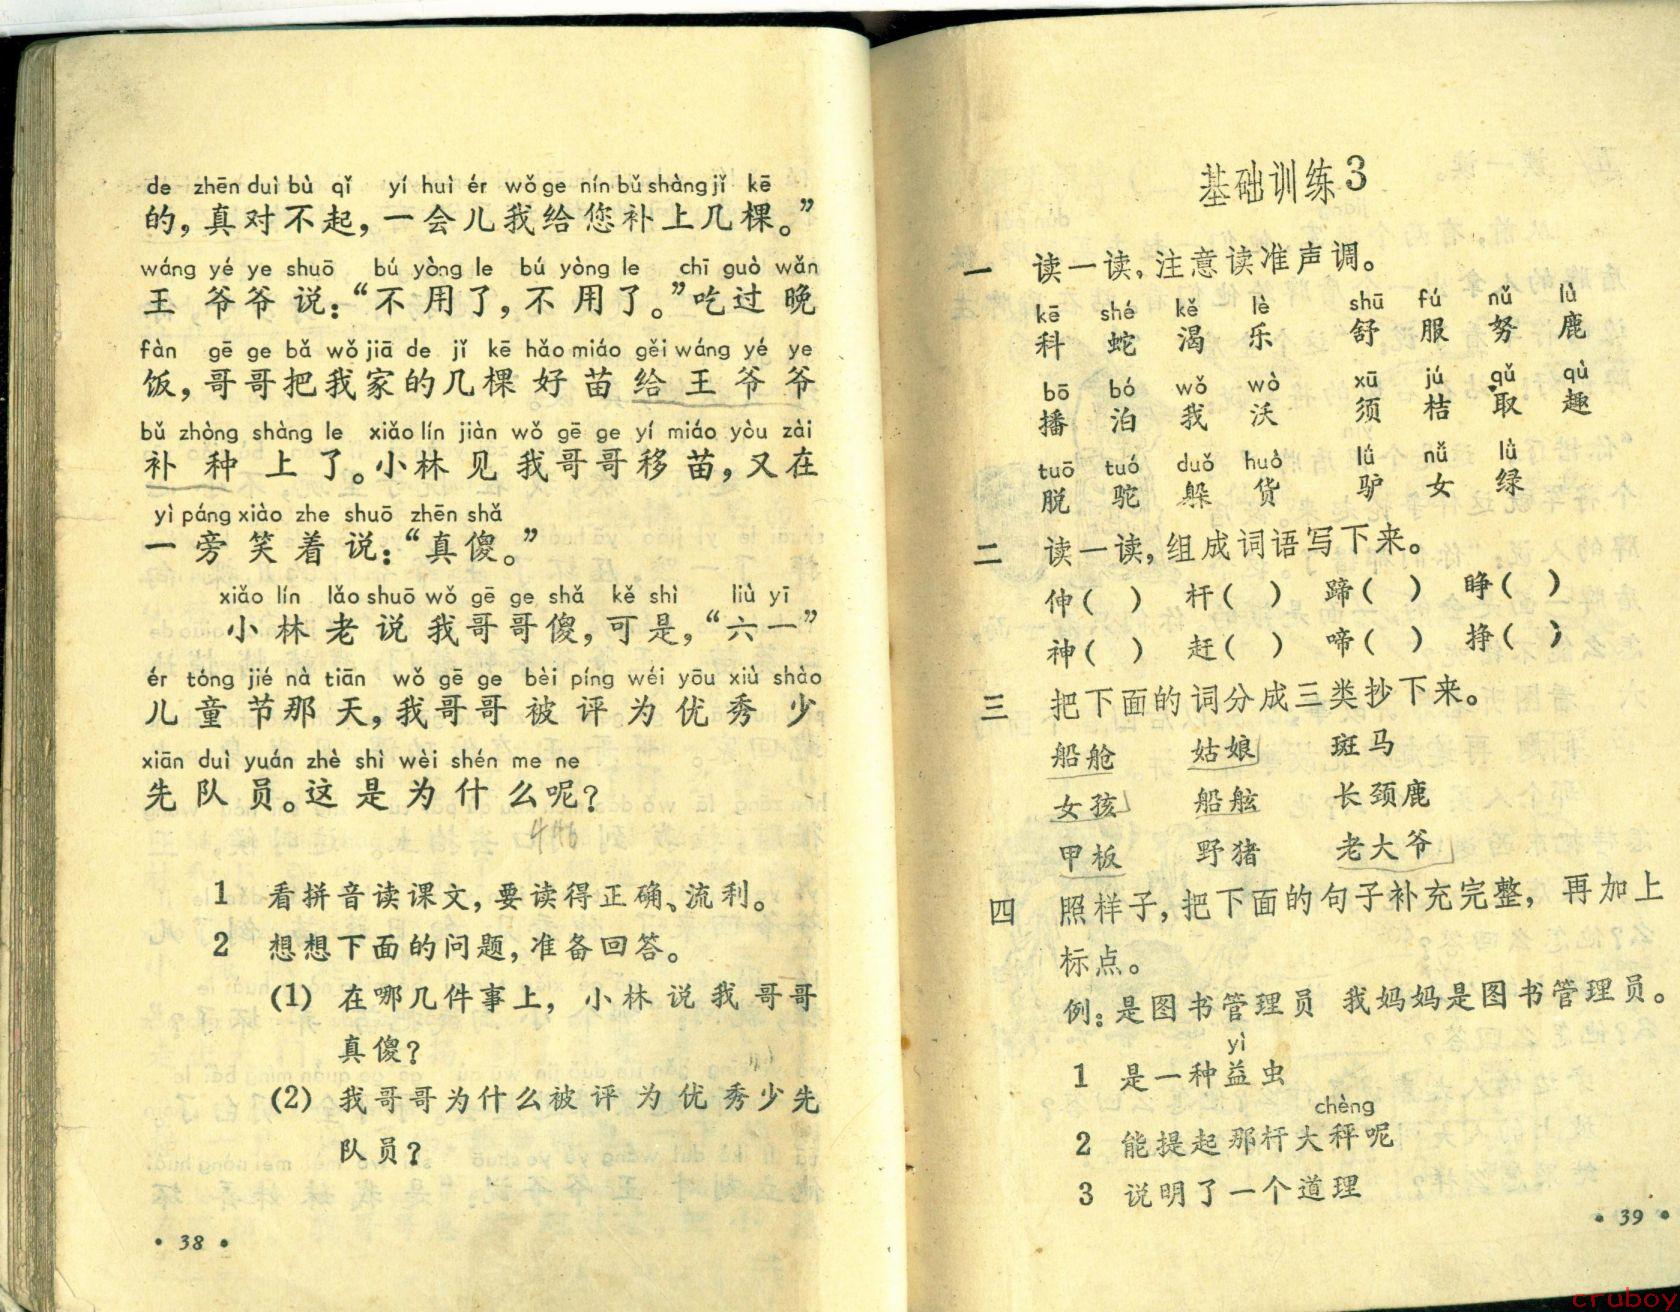 de zhēn duì bù qǐ yí huì ér wǒ ge nín bǔ shàng jǐ kē
的，真对不起，一会儿我给您补上几棵。”
wáng yé ye shuō bú yòng le bú yòng le chī guò wǎn
王爷爷说：“不用了，不用了。”吃过晚
fàn gē ge bǎ wǒ jiā de jǐ kē hǎo miáo gěi wáng yé ye
饭，哥哥把我家的几棵好苗给王爷爷
bǔ zhòng shàng le xiǎo lín jiàn wǒ gē ge yí miáo yòu zài
补种上了。小林见我哥哥移苗，又在
yì páng xiào zhe shuō zhēn shǎ
一旁笑着说：“真傻。”
xiǎo lín lǎo shuō wǒ gē ge shǎ kě shì liù yī
小林老说我哥哥傻，可是，“六一”
ér tóng jié nà tiān wǒ gē ge bèi píng wéi yōu xiù shào
儿童节那天，我哥哥被评为优秀少
xiān duì yuán zhè shì wèi shén me ne
先队员。这是为什么呢？
1 看拼音读课文，要读得正确、流利。
2 想想下面的问题，准备回答。
(1) 在哪几件事上，小林说我哥哥
真傻？
(2) 我哥哥为什么被评为优秀少先
队员？
• 38 •
基础训练3
一 读一读，注意读准声调。
kē shé kě lè shū fú nǔ lù
科 蛇 渴 乐 舒 服 努 鹿
bō bó wǒ wò xū jú qǔ qù
播 泊 我 沃 须 桔 取 趣
tuō tuó duǒ huò lǘ nǚ lǜ
脱 驼 躲 货 驴 女 绿
二 读一读，组成词语写下来。
伸（ ） 杆（ ） 蹄（ ） 睁（ ）
神（ ） 赶（ ） 啼（ ） 挣（ ）
三 把下面的词分成三类抄下来。
船舱 姑娘 斑马
女孩 船舷 长颈鹿
甲板 野猪 老大爷
四 照样子，把下面的句子补充完整，再加上
标点。
例：是图书管理员 我妈妈是图书管理员。
yì
1 是一种益虫
chèng
2 能提起那杆大秤呢
3 说明了一个道理
• 39 •
cruboy